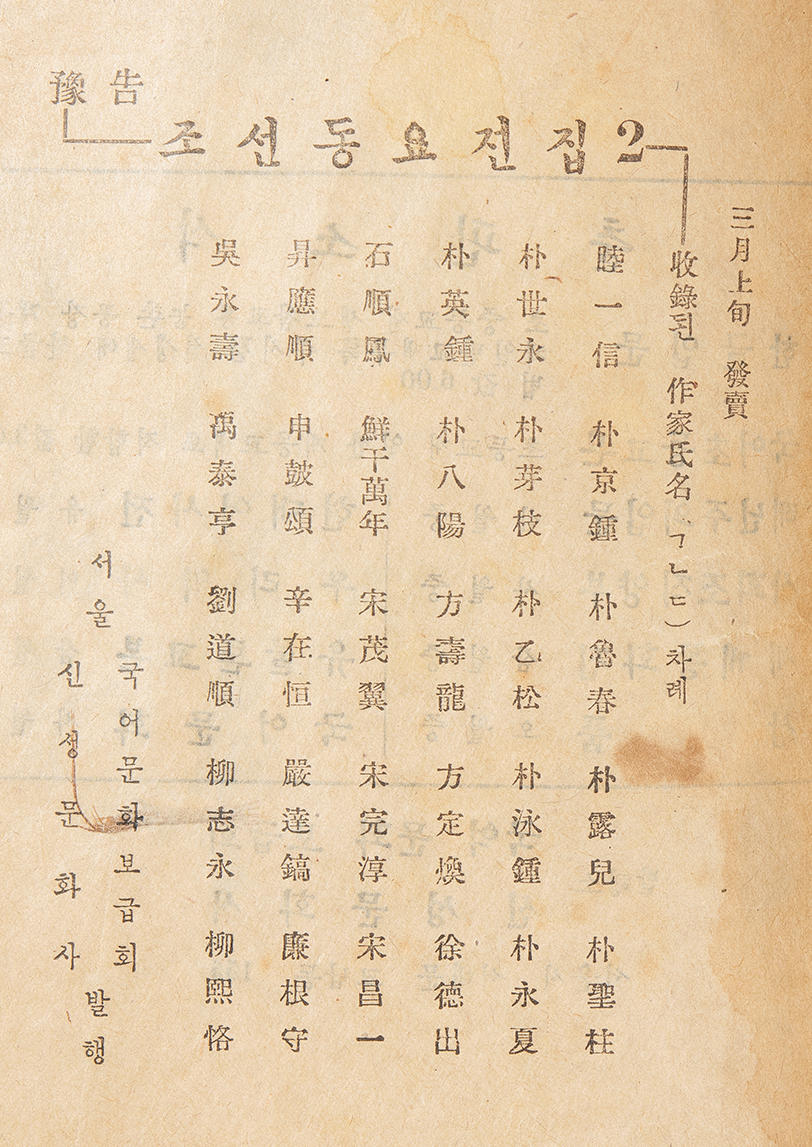 豫告
조선동요전집 2
三月上旬 發賣
收錄된 作家氏名(ㄱㄴㄷ) 차례
睦一信 朴京鍾 朴魯春 朴露兒 朴聖柱
朴世永 朴芽枝 朴乙松 朴泳鍾 朴永夏
朴英鍾 朴八陽 方壽龍 方定煥 徐德出
石順鳳 鮮于萬年 宋茂翼 宋完淳 宋昌一
昇應順 申鼓頌 辛在恒 嚴達鎬 廉根守
吳永壽 禹泰亨 劉道順 柳志永 柳熙恪
서울
국어문화보급회
신생문화사
발행